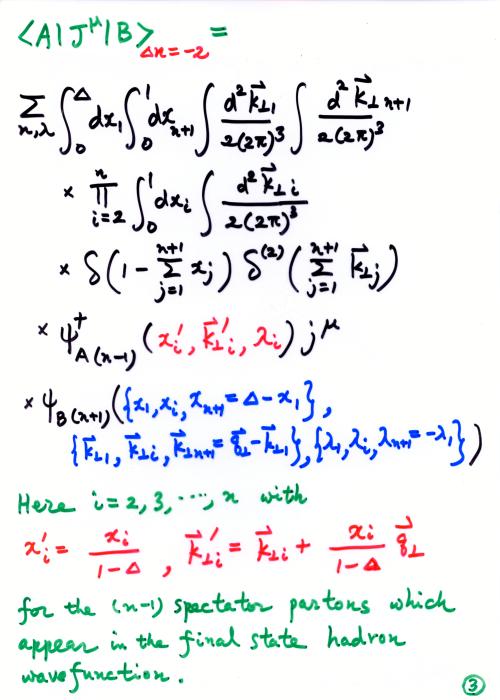 ⟨A|J^μ|B⟩_{Δn=-2} =
∑_{n,λ} ∫_0^Δ dx_1 ∫_0^1 dx_{n+1} ∫ d²k⃗_{⊥1} / 2(2π)³ ∫ d²k⃗_{⊥n+1} / 2(2π)³
× ∏_{i=2}^{n} ∫_0^1 dx_i ∫ d²k⃗_{⊥i} / 2(2π)³
× δ(1 - ∑_{j=1}^{n+1} x_j) δ^{(2)}(∑_{j=1}^{n+1} k⃗_{⊥j})
× ψ^†_{A(n-1)} (x_i', k⃗_{⊥i}', λ_i) j^μ
× ψ_{B(n+1)}({x_1, x_i, x_{n+1} = Δ - x_1},
{k⃗_{⊥1}, k⃗_{⊥i}, k⃗_{⊥n+1} = q⃗_⊥ - k⃗_{⊥1}}, {λ_1, λ_i, λ_{n+1} = -λ_1})
Here i = 2, 3, ···, n with
x_i' = x_i / 1-Δ , k⃗_{⊥i}' = k⃗_{⊥i} + x_i / 1-Δ q⃗_⊥
for the (n-1) spectator partons which
appear in the final state hadron
wavefunction.
③